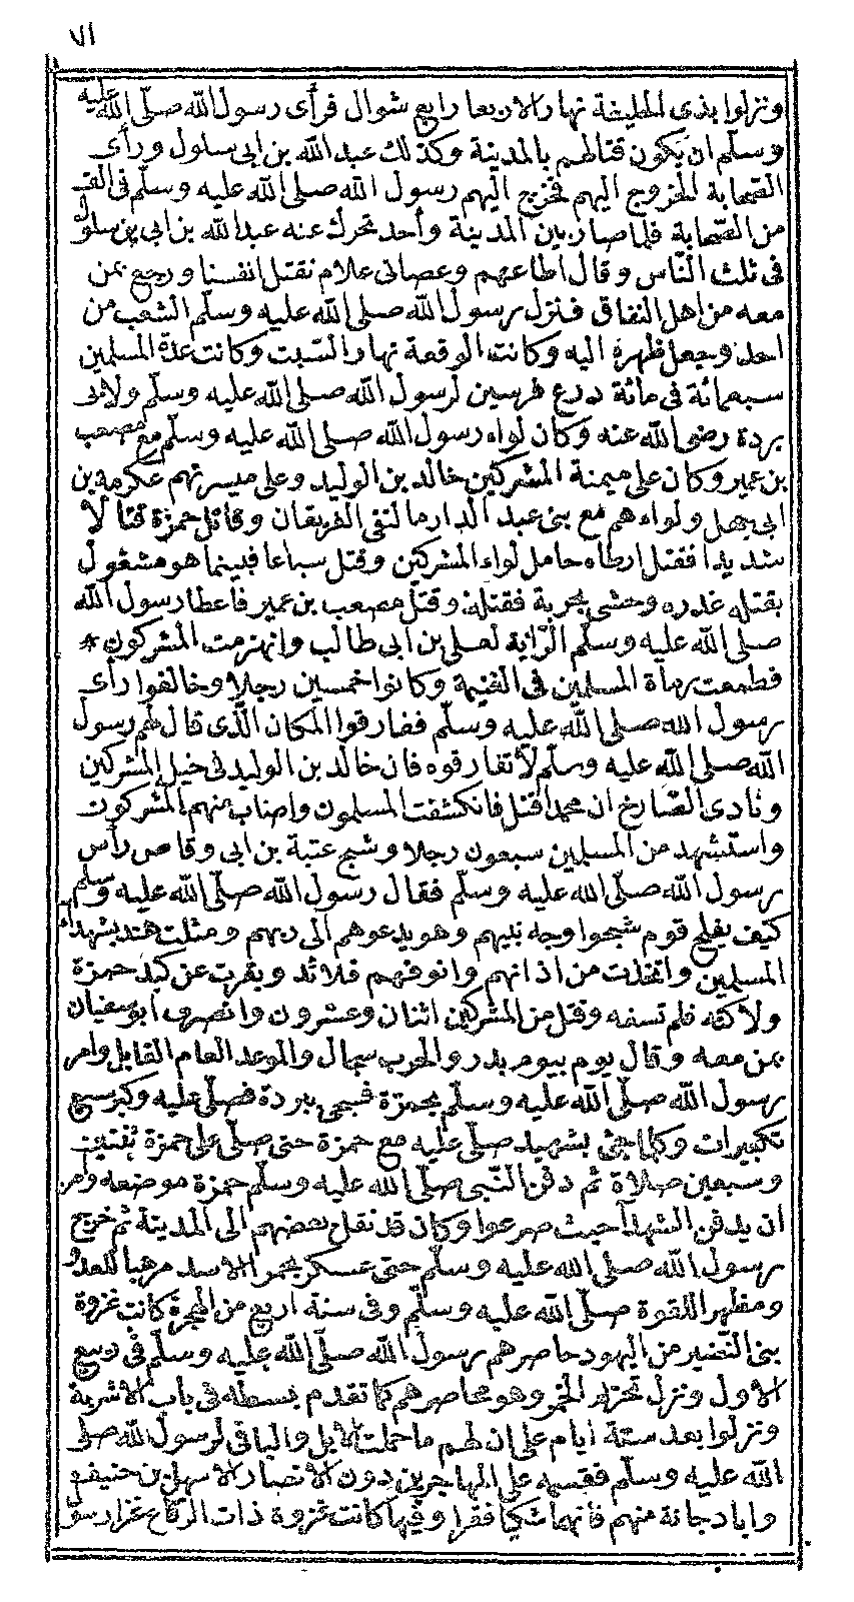 ٧١
ونزلوا بذى الحليفة نهار الاربعا رابع شوال فرأى رسول الله صلّى الله عليه
وسلّم ان يكون قتالهم بالمدينة وكذلك عبد الله بن ابى سلول ورأى
الصّحابة الخروج اليهم فخرج اليهم رسول الله صلى الله عليه وسلّم فى الف
من الصّحابة فلما صار بين المدينة وأحد تحرك عنه عبد الله بن ابى بن سلول
فى ثلث النّاس وقال اطاعهم وعصانى علام نقتل انفسنا ورجع بمن
معه من اهل النفاق فنزل رسول الله صلى الله عليه وسلّم الشعب من
احد وجعل ظهره اليه وكانت الوقعة نهار السّبت وكانت عدّة المسلمين
سبعمائة فى مائة درع فرسين لرسول الله صلى الله عليه وسلّم ولابى
بردة رضى الله عنه وكان لواء رسول الله صلى الله عليه وسلّم مع مصعب
بن عمير وكان على ميمنة المشركين خالد بن الوليد وعلى ميسرتهم عكرمه بن
ابى جهل ولواءهم مع بنى عبد الدار مالتقى الفريقان وقاتل حمزة قتالا
شديدا فقتل ارطاه حامل لواء المشركين وقتل سباعا فبينما هو مشغول
بقتله غدره وحشى بحربة فقتله وقتل مصعب بن عمير فاعطا رسول الله
صلى الله عليه وسلّم الرّاية لعلى بن ابى طالب وانهزمت المشركون *
فطمعت رماة المسلمين فى الغنيمة وكانوا خمسين رجلا وخالفوا رأى
رسول الله صلى الله عليه وسلّم ففارقوا المكان الّذى قال لهم رسول
الله صلى الله عليه وسلّم لا تفارقوه فان خالد بن الوليد فى خيل المشركين
ونادى الصّارخ ان محمدا قتل فانكشفت المسلمون واصاب منهم المشركون
واستشهد من المسلمين سبعون رجلا وشج عتبة بن ابى وقاص رأس
رسول الله صلّى الله عليه وسلّم فقال رسول الله صلّى الله عليه وسلم
كيف يفلح قوم شجوا وجه نبيهم وهو يدعوهم الى ربهم ومثلت هند بشهداء
المسلمين واتخذت من اذانهم وانوفهم قلائد وبقرت عن كبد حمزة
ولاكته فلم تسغه وقتل من المشركين اثنان وعشرون وانصرف ابو سفيان
بمن معه وقال يوم بيوم بدر والحرب سجال والموعد العام القابل وامر
رسول الله صلّى الله عليه وسلّم بحمزة فسجى ببردة فصلّى عليه وكبر سبع
تكبيرات وكلما جئ بشهيد صلّى عليه مع حمزة حتى صلّى على حمزة ثنتين
وسبعين صلاة ثم دفن النّبى صلّى الله عليه وسلّم حمزة موضعه وامر
ان يدفن الشهدآ حيث صرعوا وكان قد نقل بعضهم الى المدينة ثم خرج
رسول الله صلى الله عليه وسلّم حتى عسكر بحمرا الاسد مرهبا للعدوّ
ومظهرا للقوة صلّى الله عليه وسلّم وفى سنة اربع من الهجرة كانت غزوة
بنى النّضير من اليهود حاصرهم رسول الله صلّى الله عليه وسلّم فى ربيع
الاول ونزل تحريم الخمر وهو محاصرهم كما تقدم بسطه فى باب الاشربة
ونزلوا بعد ستة ايام على ان لهم ما حملت الابل والباقى لرسول الله صلى
الله عليه وسلّم فقسمه على المهاجرين دون الانصار الا سهل بن حنيف
وابا دجانة منهم فانهما شكيا فقرا وفيها كانت غزوة ذات الرقاع غزا رسول